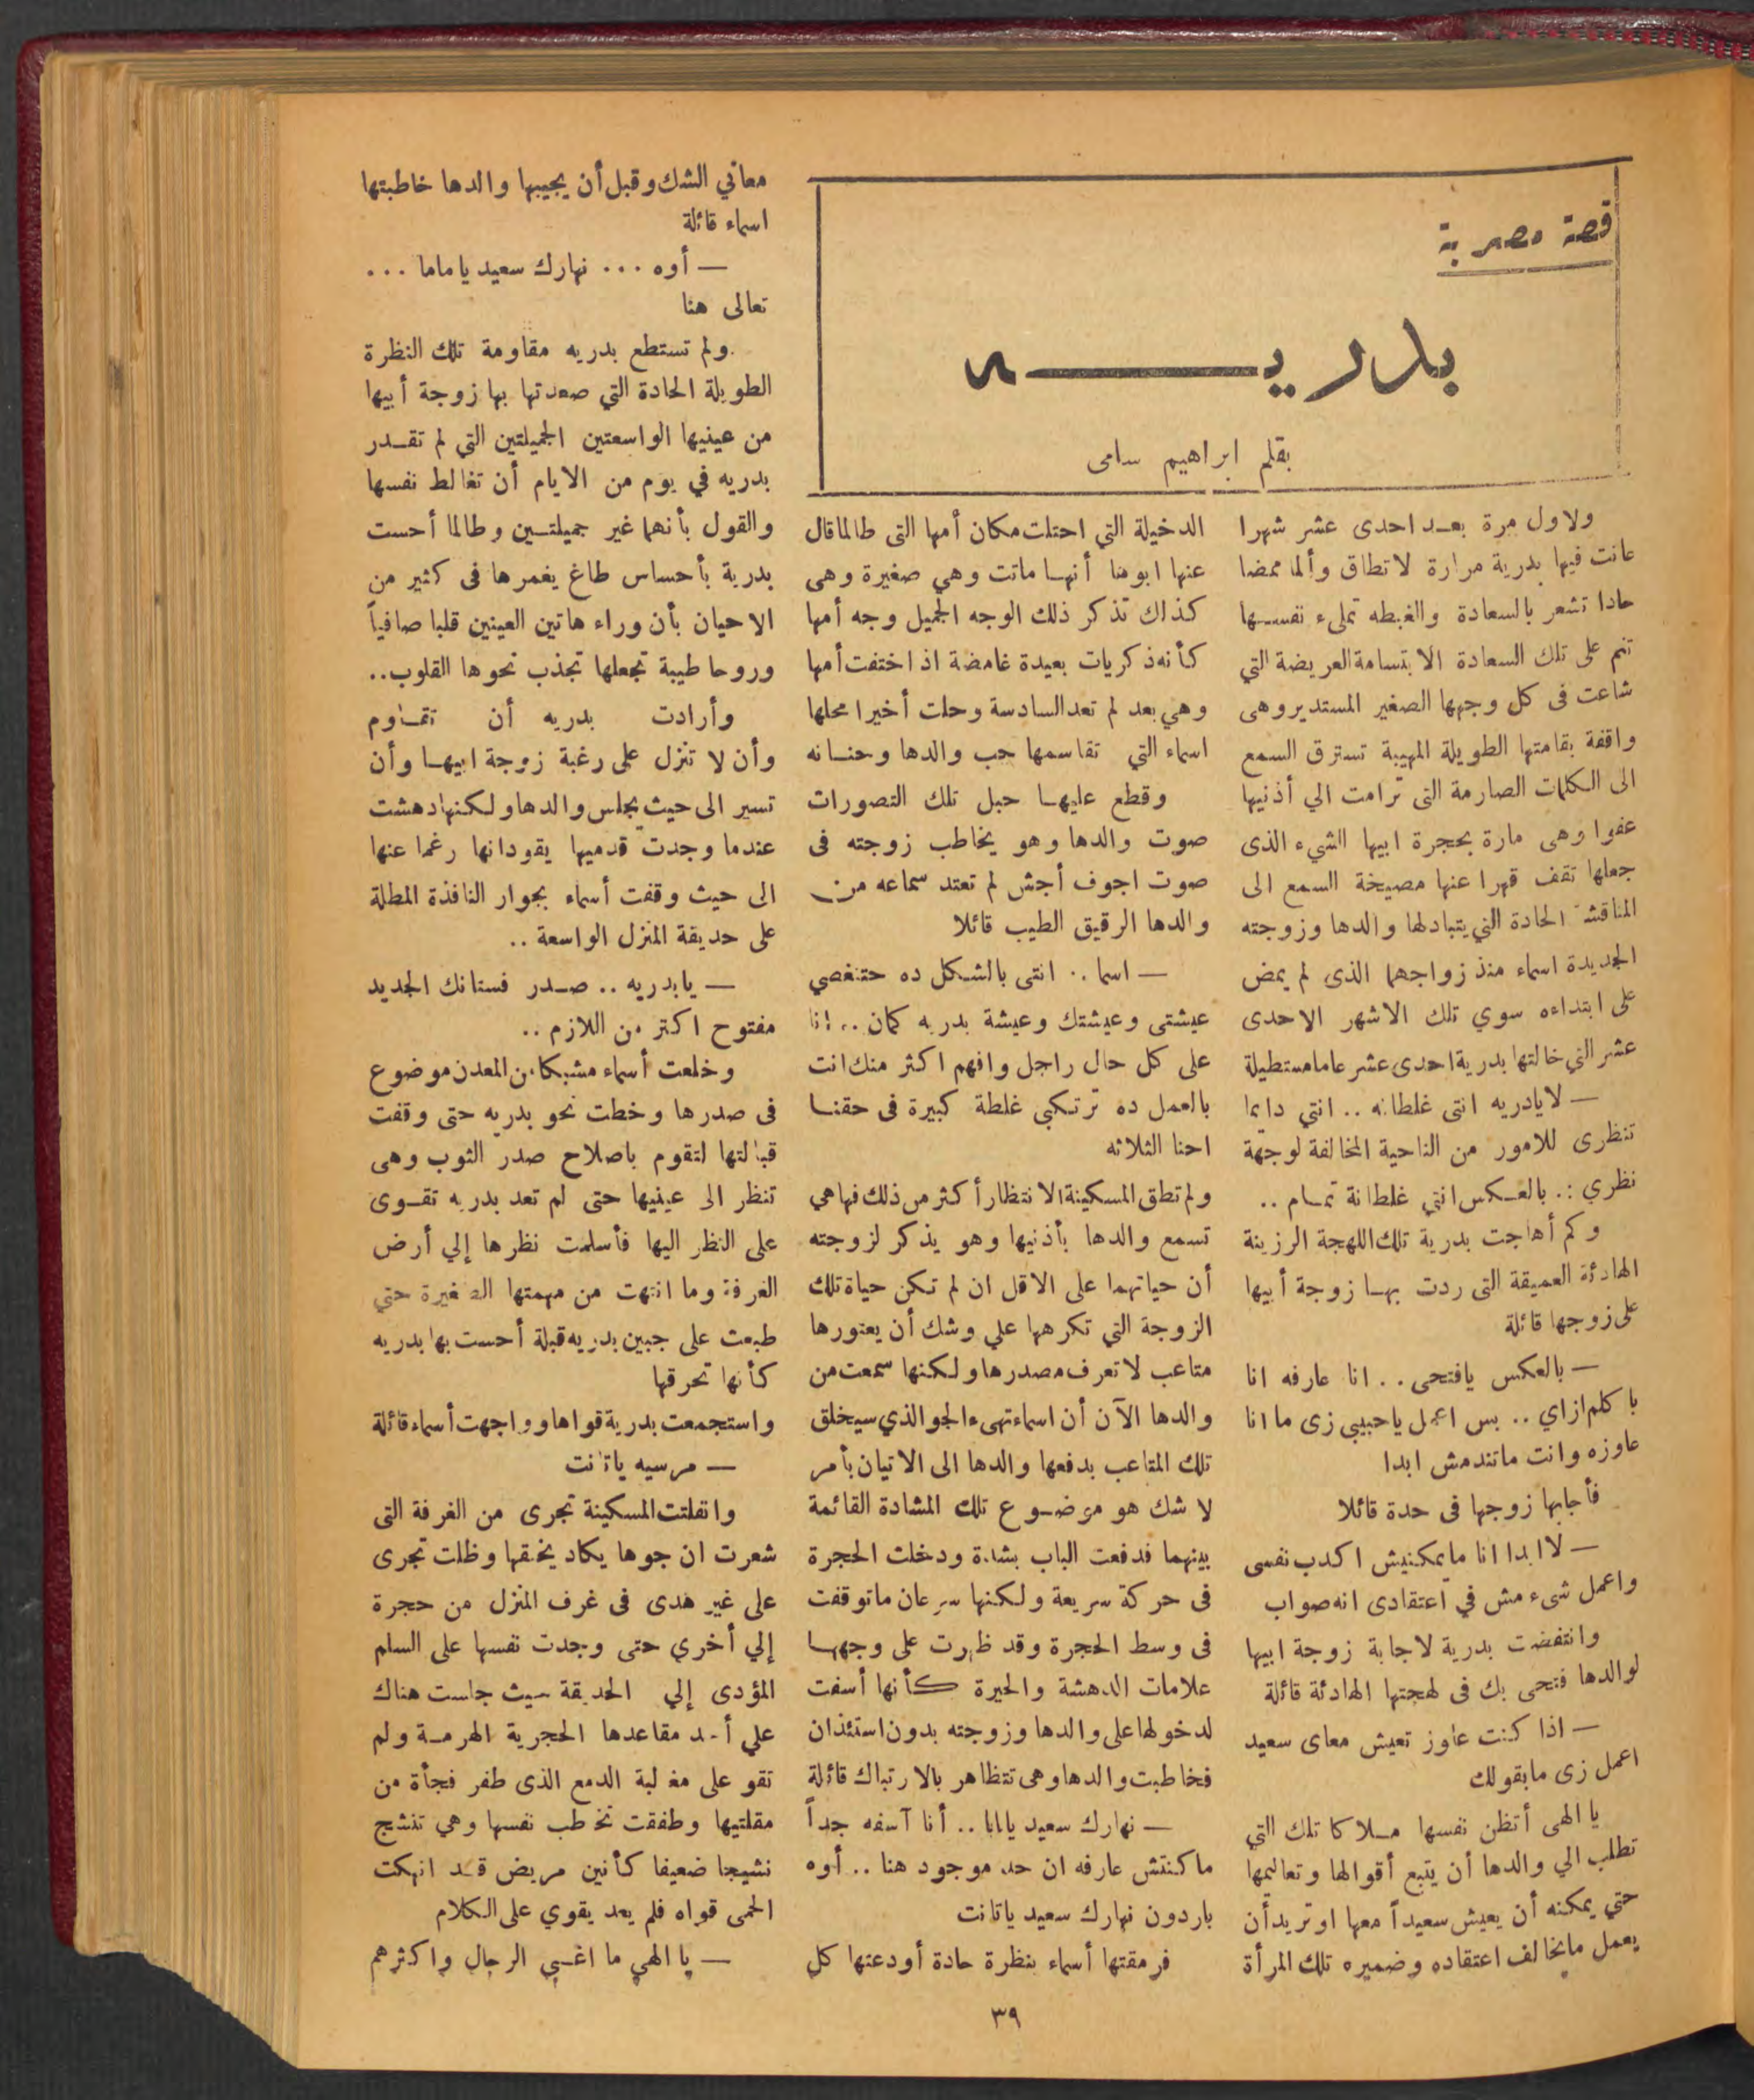 قصة مصرية
بدريـــــه
بقلم ابراهيم سامى
ولاول مرة بعـد احدى عشر شهرا
عانت فيها بدرية مرارة لا تطاق وألما ممضا
حادا تشعر بالسعادة والغبطه تملىء نفسـها
تنم على تلك السعادة الابتسامة العريضة التي
شاعت فى كل وجهها الصغير المستدير وهى
واقفة بقامتها الطويلة المهيبة تسترق السمع
الى الكلمات الصارمة التى ترامت الي أذنيها
عفوا وهى مارة بحجرة ابيها الشيء الذى
جعلها تقف قهرا عنها مصيخة السمع الى
المناقشة الحادة التي يتبادلها والدها وزوجته
الجديدة اسماء منذ زواجهما الذى لم يمض
على ابتداءه سوي تلك الاشهر الاحدى
عشر التي خالتها بدرية احدى عشر عاما مستطيلة
— لا يادريه انتى غلطانه .. انتي دايما
تنظرى للامور من الناحية المخالفة لوجهة
نظري .. بالعـكس انتي غلطانة تمـام ..
وكم أهاجت بدرية تلك اللهجة الرزينة
الهادئة العميقة التى ردت بهـا زوجة أبيها
على زوجها قائلة
— بالعكس يافتحى .. انا عارفه انا
باكلم ازاي .. بس اعمل ياحبيبي زى ما انا
عاوزه وانت ماتندمش ابدا
فأجابها زوجها فى حدة قائلا
— لا ابدا انا مايمكنيش اكدب نفسى
واعمل شىء مش في اعتقادى انه صواب
وانتفضت بدرية لاجابة زوجة ابيها
لوالدها فتحى بك فى لهجتها الهادئة قائلة
— اذا كنت عاوز تعيش معاى سعيد
اعمل زى مابقولك
يا الهى أتظن نفسها مـلاكا تلك التي
تطلب الي والدها أن يتبع أقوالها وتعاليمها
حتي يمكنه أن يعيش سعيداً معها او تريد أن
يعمل مايخالف اعتقاده وضميره تلك المرأة
الدخيلة التي احتلت مكان أمها التى طالما قال
عنها ابوها أنهـا ماتت وهي صغيرة وهى
كذلك تذكر ذلك الوجه الجميل وجه أمها
كأنه ذكريات بعيدة غامضة اذ اختفت أمها
وهي بعد لم تعد السادسة وحلت أخيرا محلها
اسماء التي تقاسمها حب والدها وحنـانه
وقطع عليهـا حبل تلك التصورات
صوت والدها وهو يخاطب زوجته فى
صوت اجوف أجش لم تعتد سماعه من
والدها الرقيق الطيب قائلا
— اسما .. انتى بالشـكل ده حتنغصي
عيشتى وعيشتك وعيشة بدريه كمان .. انا
على كل حال راجل وافهم اكثر منك انت
بالعمل ده ترتكبي غلطة كبيرة فى حقنـا
احنا الثلاثه
ولم تطق المسكينة الانتظار أكثر من ذلك فهاهي
تسمع والدها بأذنيها وهو يذكر لزوجته
أن حياتهما على الاقل ان لم تكن حياة تلك
الزوجة التي تكرهها علي وشك أن يعتورها
متاعب لا تعرف مصدرها ولكنها سمعت من
والدها الآن أن اسماء تهىء الجو الذي سيخلق
تلك المتاعب بدفعها والدها الى الاتيان بأمر
لا شك هو موضـوع تلك المشادة القائمة
بينهما فدفعت الباب بشدة ودخلت الحجرة
فى حركة سريعة ولكنها سرعان ماتوقفت
فى وسط الحجرة وقد ظهرت على وجههـا
علامات الدهشة والحيرة كأنها أسفت
لدخولها على والدها وزوجته بدون استئذان
فخاطبت والدها وهى تتظاهر بالارتباك قائلة
— نهارك سعيد يابابا .. أنا آسفه جداً
ماكنتش عارفه ان حد موجود هنا .. أوه
باردون نهارك سعيد ياتانت
فرمقتها أسماء بنظرة حادة أودعتها كل
معاني الشك وقبل أن يجيبها والدها خاطبتها
اسماء قائلة
— أوه ... نهارك سعيد ياماما ...
تعالى هنا
ولم تستطع بدريه مقاومة تلك النظرة
الطويلة الحادة التي صعدتها بها زوجة أبيها
من عينيها الواسعتين الجميلتين التي لم تقـدر
بدريه في يوم من الايام أن تغالط نفسها
والقول بأنهما غير جميلتـين وطالما أحست
بدرية بأحساس طاغ يغمرها فى كثير من
الاحيان بأن وراء هاتين العينين قلبا صافياً
وروحا طيبة تجعلها تجذب نحوها القلوب..
وأرادت بدريه أن تقـاوم
وأن لا تنزل على رغبة زوجة ابيهـا وأن
تسير الى حيث يجلس والدها ولكنها دهشت
عندما وجدت قدميها يقودانها رغما عنها
الى حيث وقفت أسماء بجوار النافذة المطلة
على حديقة المنزل الواسعة ..
— يابدريه .. صـدر فستانك الجديد
مفتوح اكتر من اللازم ..
وخلعت أسماء مشبكا من المعدن موضوع
فى صدرها وخطت نحو بدريه حتى وقفت
قبالتها لتقوم باصلاح صدر الثوب وهى
تنظر الى عينيها حتى لم تعد بدريه تقـوى
على النظر اليها فأسلمت نظرها إلي أرض
الغرفة وما انتهت من مهمتها الصغيرة حتي
طبعت على جبين بدريه قبلة أحست بها بدريه
كأنها تحرقها
واستجمعت بدرية قواها وواجهت أسماء قائلة
— مرسيه ياتانت
وانفلتت المسكينة تجرى من الغرفة التى
شعرت ان جوها يكاد يخنقها وظلت تجرى
على غير هدى فى غرف المنزل من حجرة
إلي أخري حتى وجدت نفسها على السلم
المؤدى إلي الحديقة حيث جلست هناك
علي أحد مقاعدها الحجرية الهرمـة ولم
تقو على مغالبة الدمع الذى طفر فجأة من
مقلتيها وطفقت تخاطب نفسها وهي تنشج
نشيجا ضعيفا كأنين مريض قـد انهكت
الحمى قواه فلم يعد يقوي على الكلام
— يا الهي ما اغـبي الرجال واكثرهم
٣٩